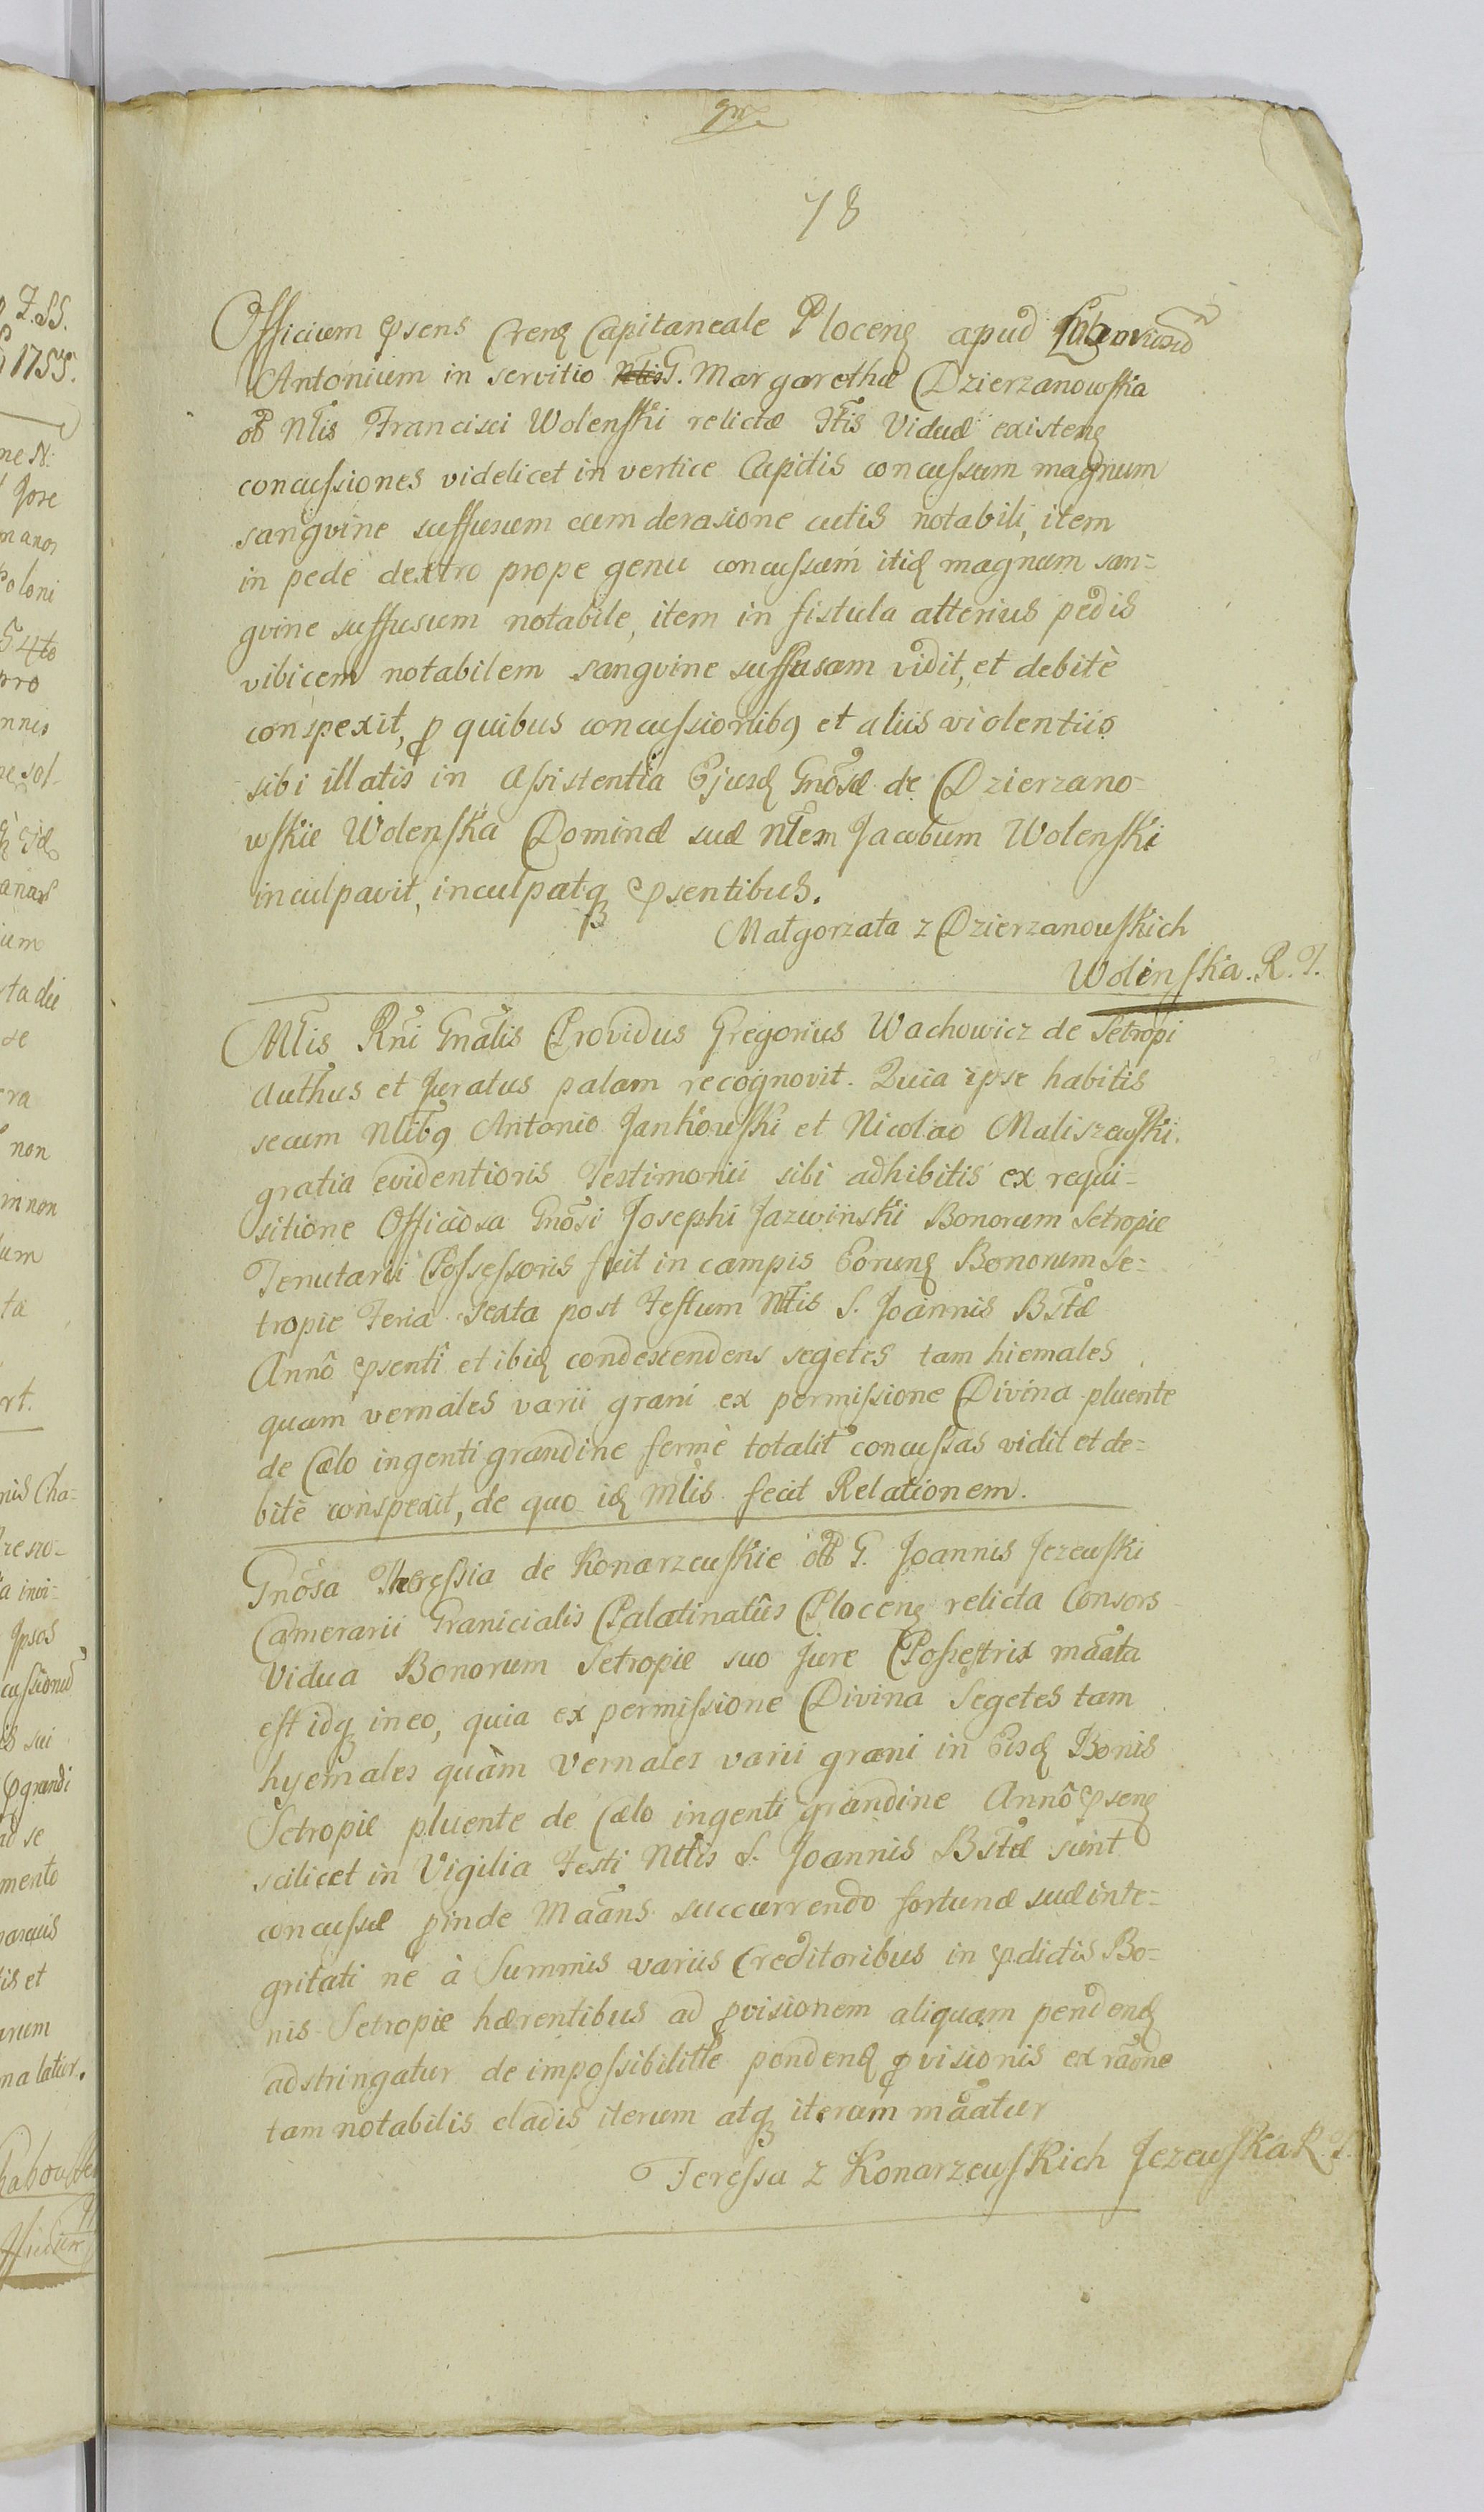 78
Officium psens Crens Capitaneale Plocens apud
Antonium in servitio G. Margarethæ Dzierzanowska
olb Nlis Francisci Wolenski relictæ Ntis Viduæ existens
concussiones videlicet in vertice Capitis concussam magnum
sangvine suffusum cum derasione cutis notabili, item
in pede dextro prope genu concussam itid magnum san=
gvine suffusum notabile, item in fistula alterius pedis
vibicem notabilem sangvine suffusam vidit, et debitè
conspexit, p quibus concussionibq et aliis violentiis
sibi illatis in Assistentia Ejusd Gnosæ de Dzierzano=
wskie Wolenska Dominæ suæ Nlem Jacobum Wolenski
inculpavit, inculpatq psentibus.
Małgorzata z Dzierzanowskich
Wolenska. R. T.
Mtis Rni Gnalis Providus Gregorius Wachowicz de Setropi
Authus et Juratus palam recognovit. Quia ipse habitis
secum Nlibq Antonio Jankowski et Nicolao Maliszewski
gratia evidentioris Testimonii sibi adhibitis ex requi=
sitione Officiosa Gnosi Josephi Jazwinski Bonorum Setropie
Tenutarii Possessoris fuit in campis Eorund Bonorum Se=
tropie Feria sexta post Festum Ntis S. Joannis Bstæ
Annô psenti et ibid condescendens segetes tam hiemales
quam vernales varii grani ex permissione Divina pluente
de Cælo ingenti grandine fermè totalit concussas vidit et de=
bitè conspexit, de quo id Mtis fecit Relationem.
Gnosa Theressia de Konarzewskie olb G. Joannis Jezewski
Camerarii Granicialis Palatinatûs Plocens relicta Consors
Vidua Bonorum Setropie suo jure Possestrix maata
est idq in eo, quia ex permissione Divina Segetes tam
hyemales quàm Vernales varii grani in Eisd Bonis
Setropie pluente de Cælo ingenti grandine Annô psens
scilicet in Vigilia Festi Ntis S. Joannis Bstæ sunt
concussæ pinde Maans succurrendo fortunæ suæ inte=
gritati ne à Summis variis Creditoribus in pdictis Bo=
nis Setropie hærentibus ad pvisionem aliquam pendend
adstringatur de impossibilitte pendend pvisionis ex raone
tam notabilis cladis iterum atq iterum maatur
Teressa z Konarzewskich Jezewska R. T.